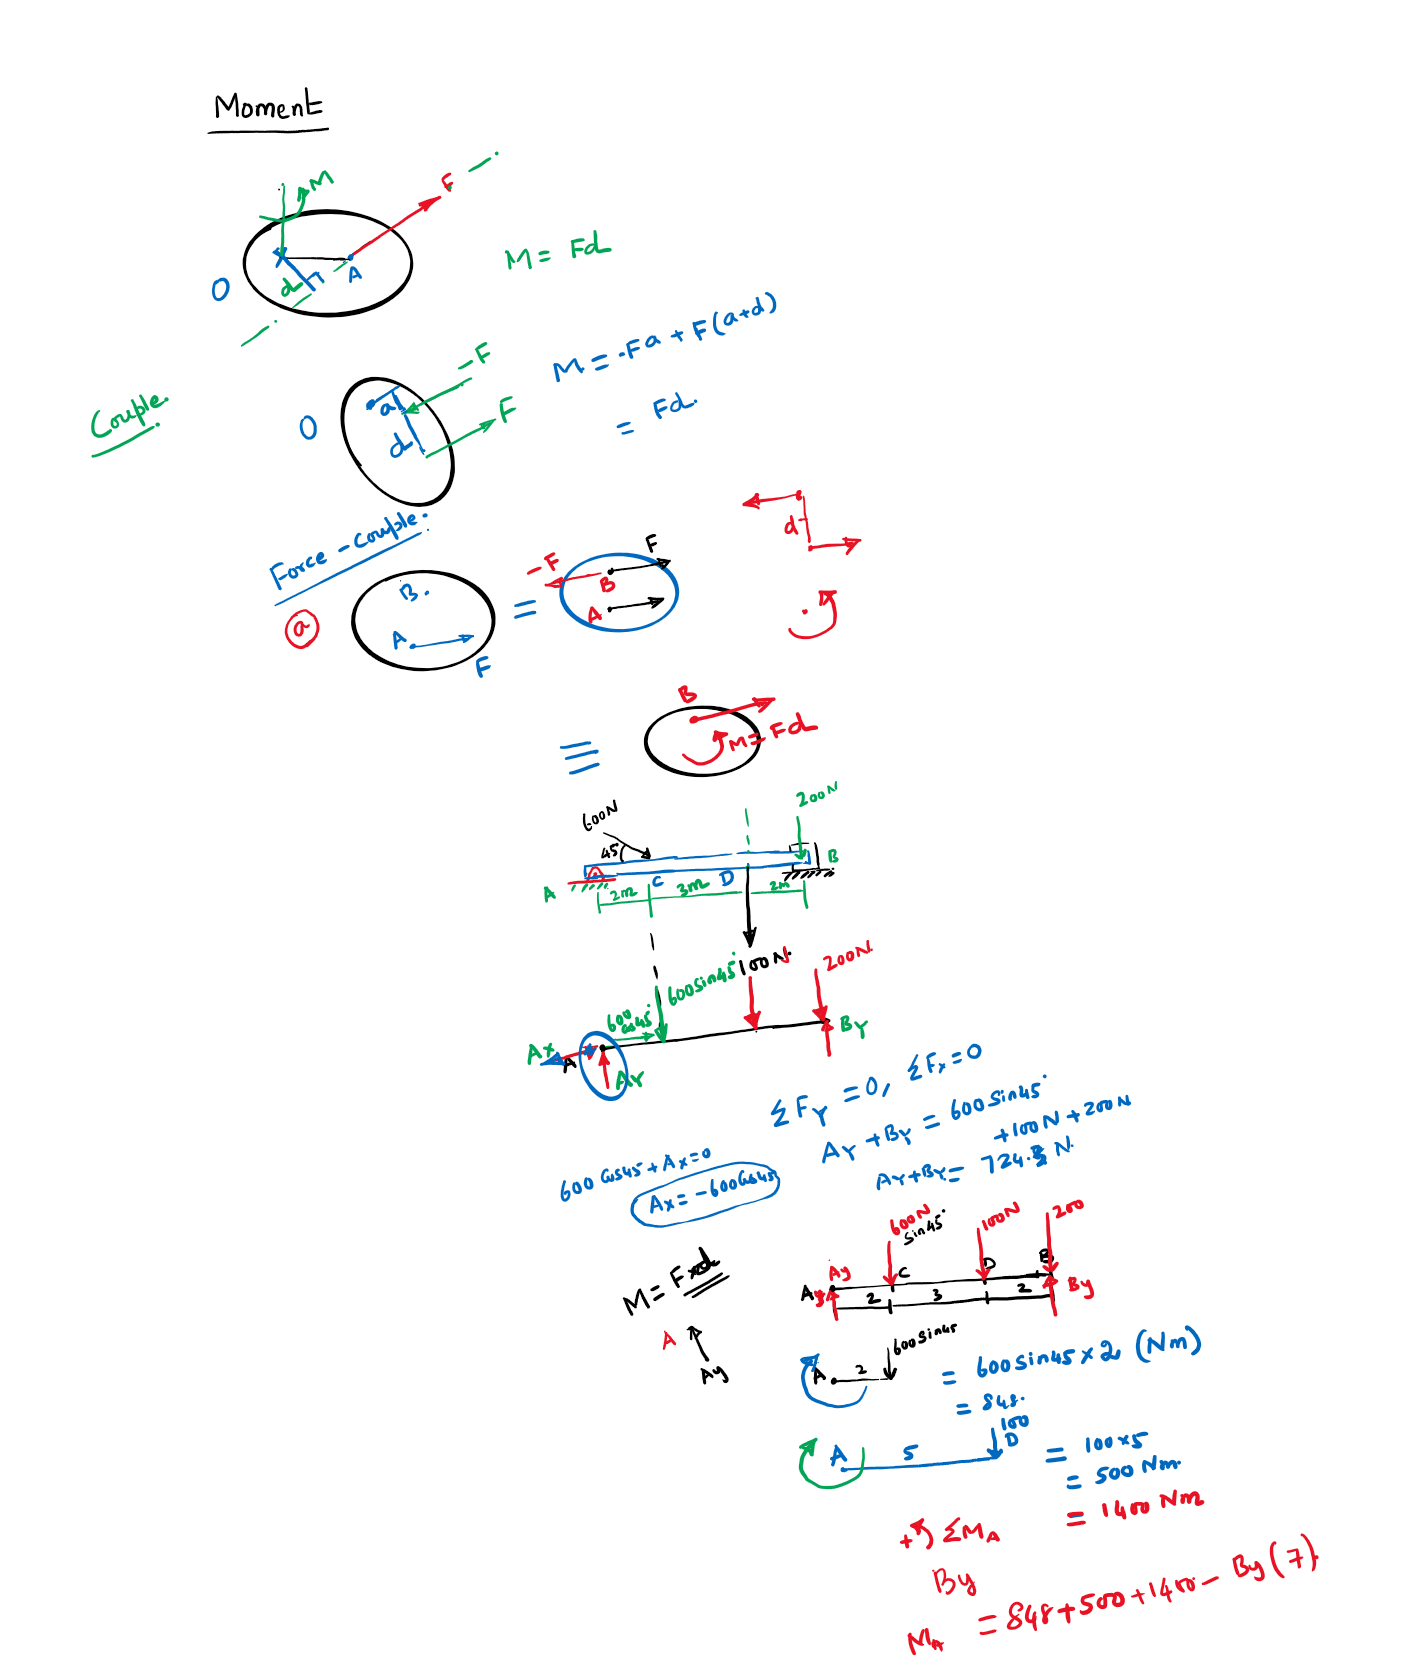 Moment
M
F
O
d
A
M = Fd
Couple.
O
a
d
-F
F
M = -Fa + F(a+d)
= Fd.
Force - couple.
a
B.
A
F
=
-F
F
B
A
d
≡
B
M = Fd
600N
45
200N
A
C
D
B
2m
3m
2m
600 sin45°
100N.
200N
600 cos45°
Ax
A
Ay
By
ΣFy = 0, ΣFx = 0
Ay + By = 600 sin45°
+100N + 200N
Ay+By = 724. N.
600 cos45 + Ax = 0
Ax = -600 cos45
M = F×d
A
Ay
600N
sin45°
100N
200
Ay
C
D
B
A
2
3
2
By
A
2
600 sin45
= 600 sin45 × 2 (Nm)
= 848.
A
5
100
D
= 100×5
= 500 Nm.
= 1400 Nm
+ ΣMA
By
MA = 848 + 500 + 1400 - By (7).